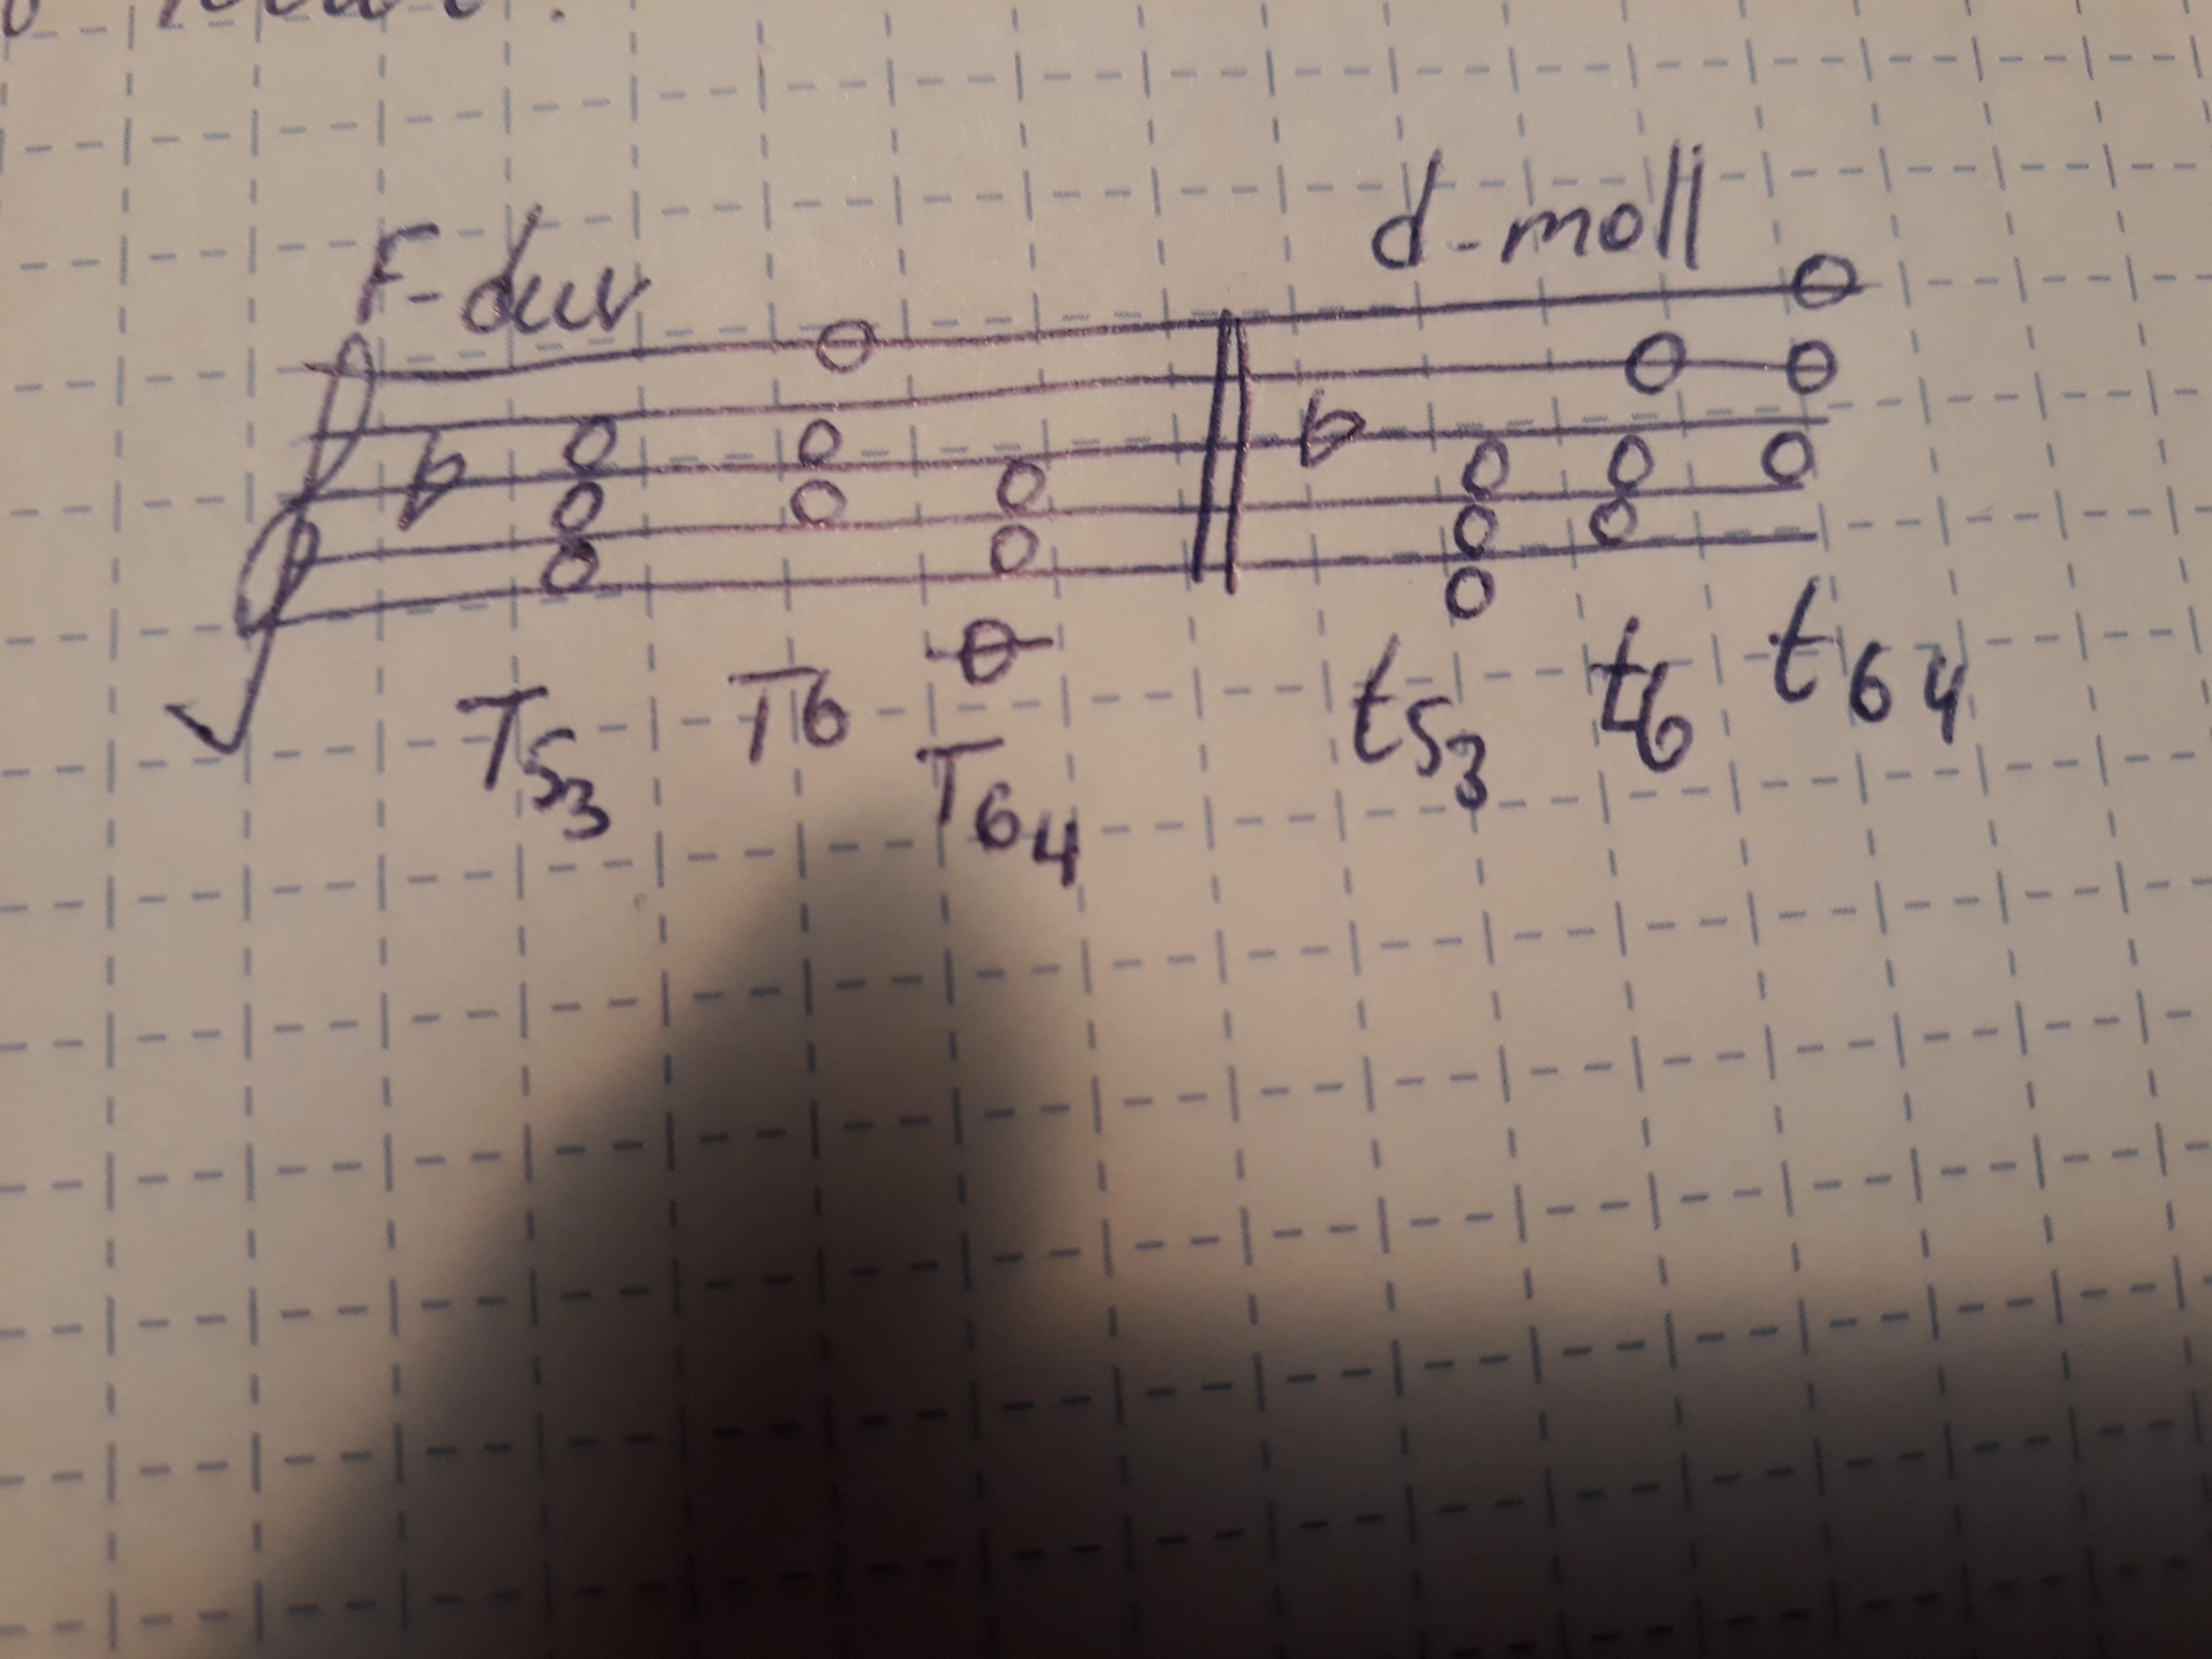 F-dur
d-moll
T53 T6 T64 t53 t6 t64